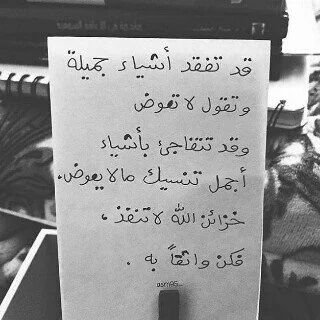 قد تفقد أشياء جميلة
وتقول لا تعوض
وقد تتفاجئ بأشياء
أجمل تنسيك مالا يعوض.
خزائن الله لا تنفذ ،
فكن واثقاً به .